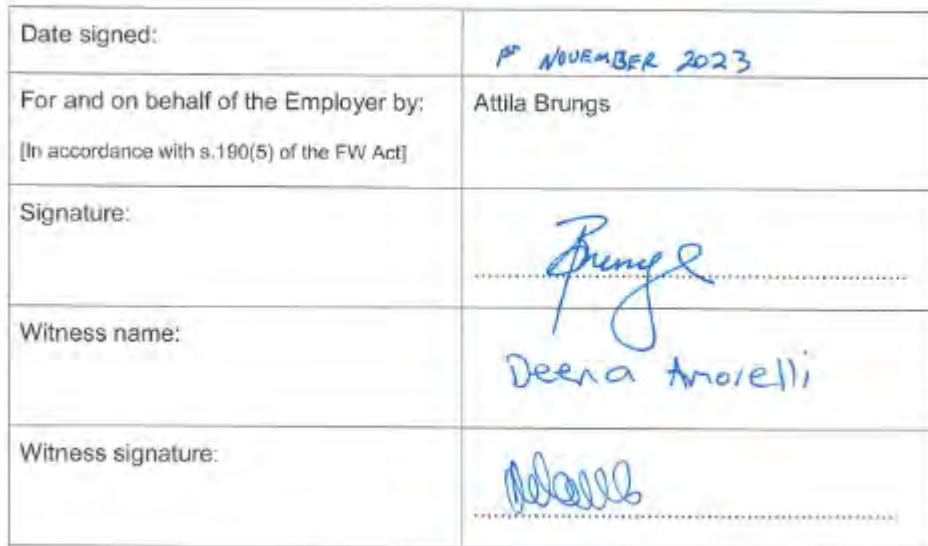 Date signed:
1ST NOVEMBER 2023
For and on behalf of the Employer by:
Attila Brungs
[In accordance with s.190(5) of the FW Act]
Signature:
Witness name:
Deena Amorelli
Witness signature: